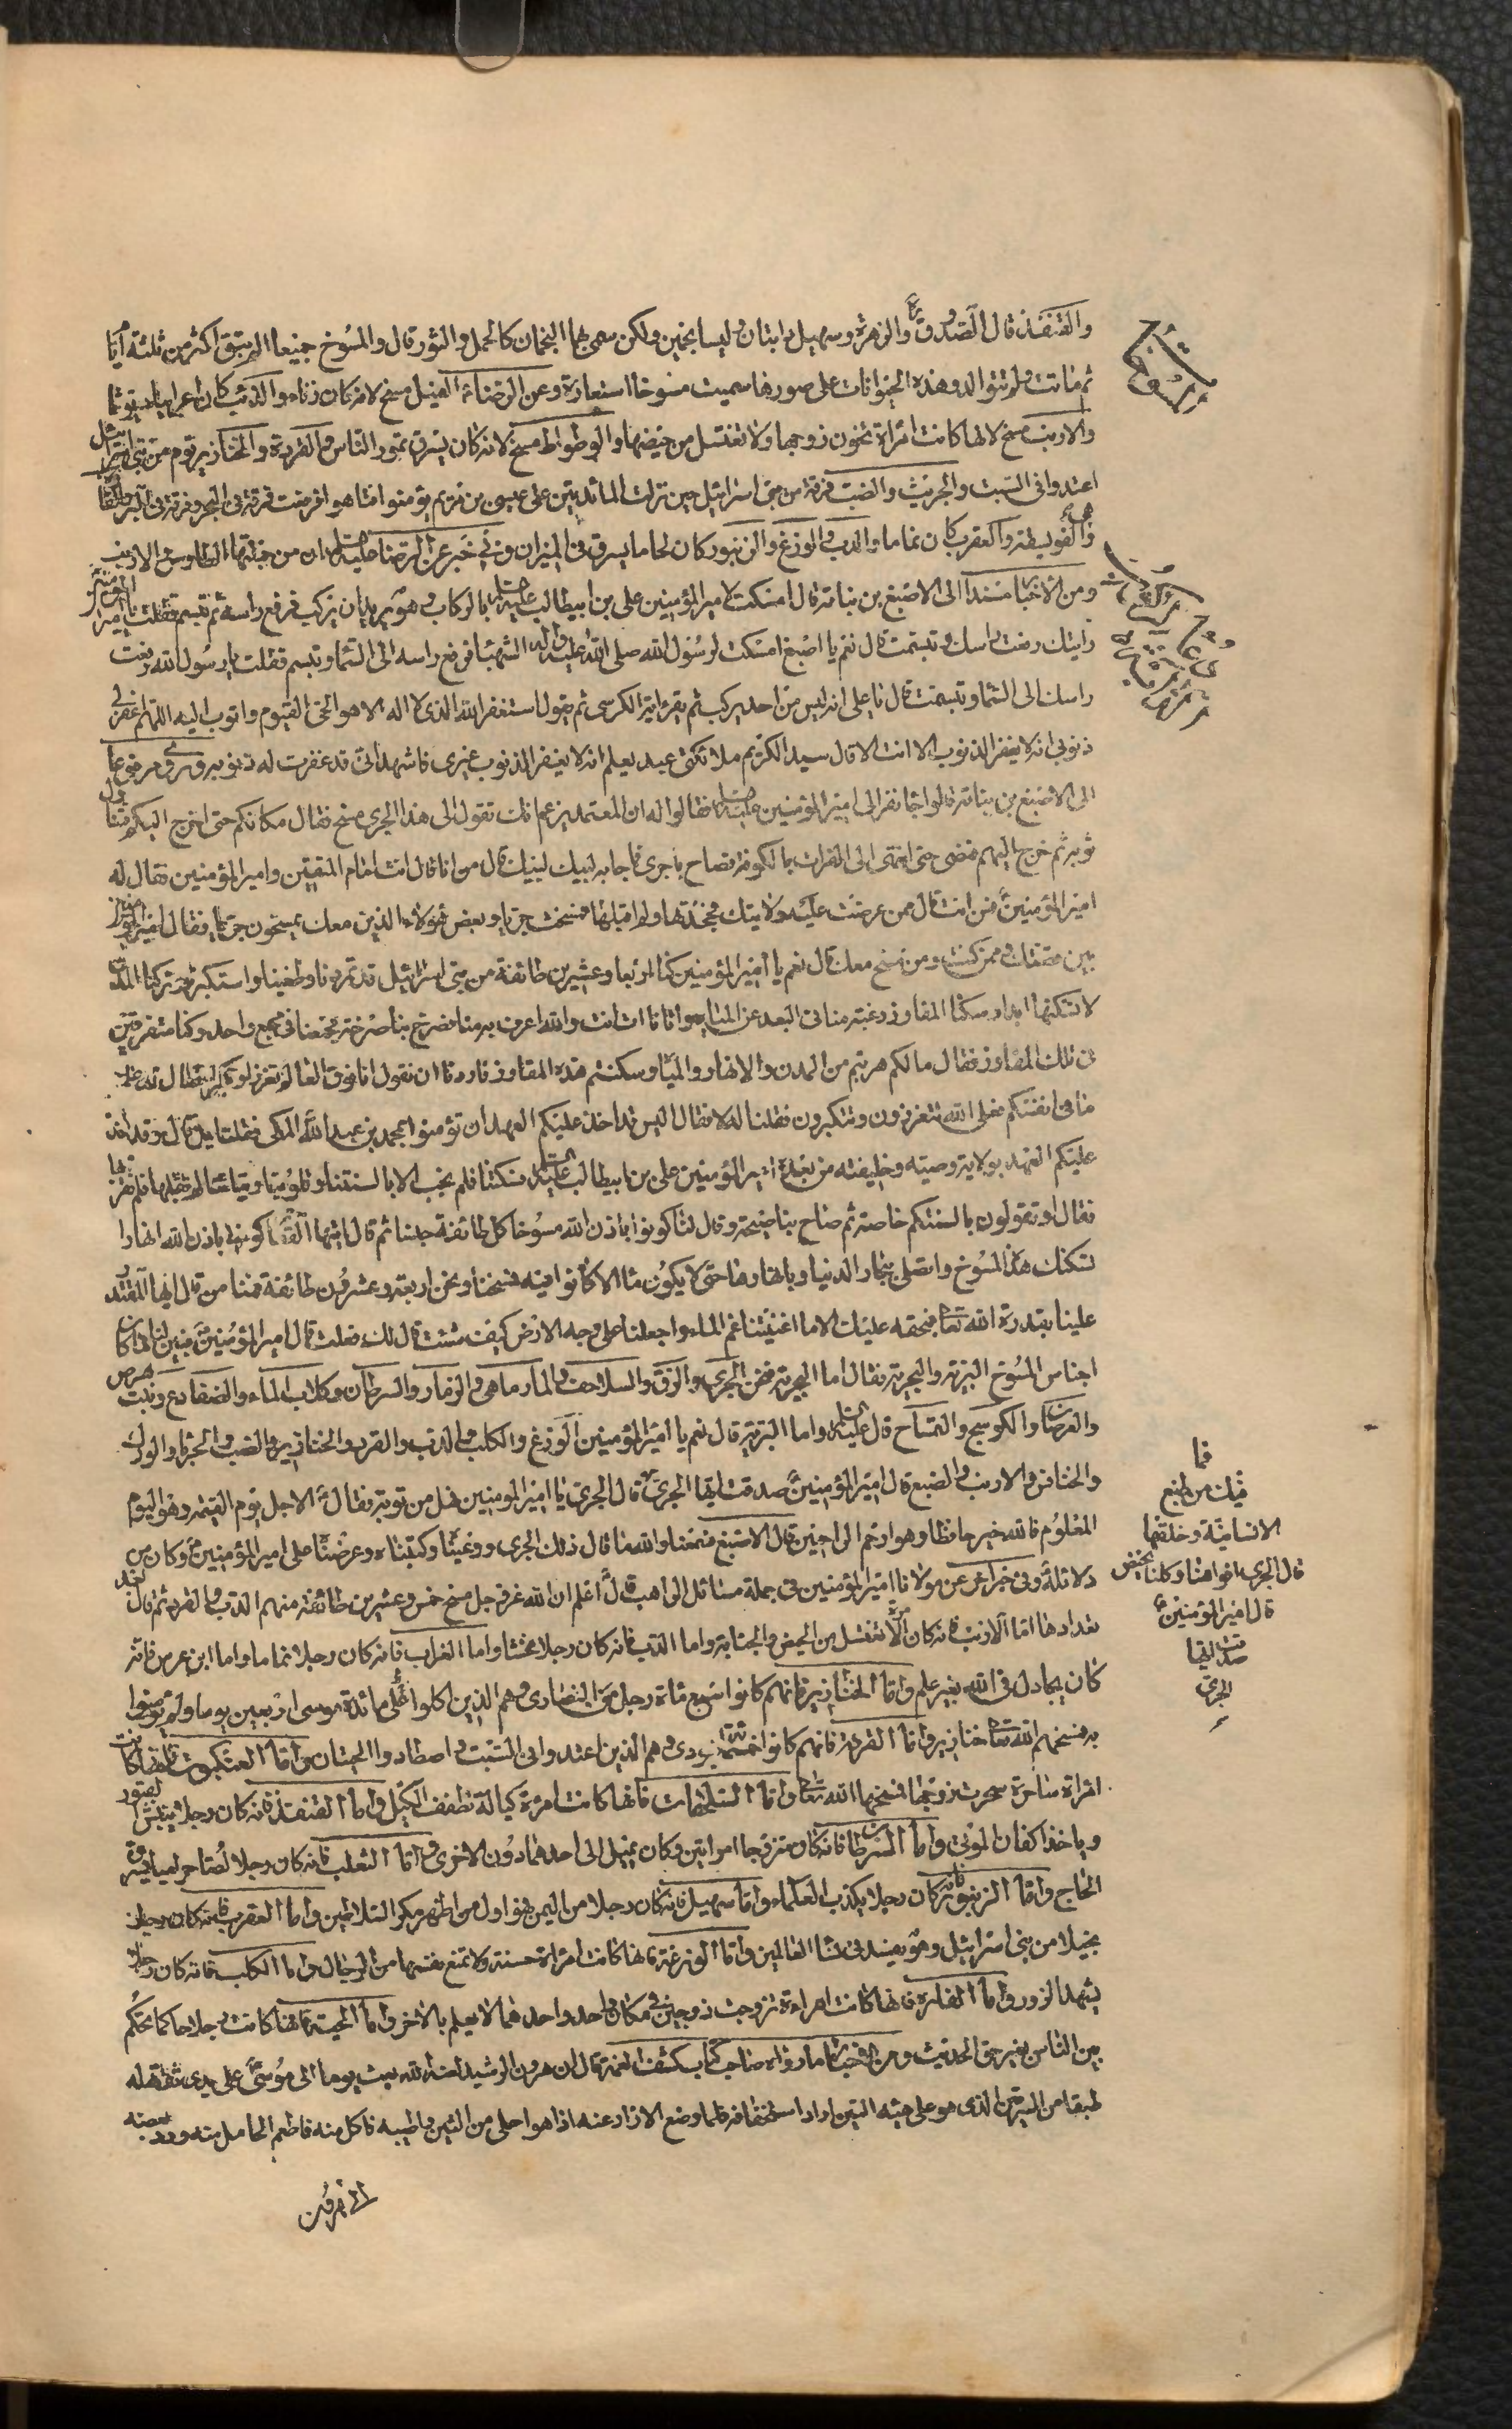 والقنفذ قال الصدوق ره والزهرة وسهيل دابتان وليسا نجمين ولكن سمى بهما النجمان كالحمل والثور قال والمسوخ جميعها لم تبق اكثر من ثلثة ايام
ثم ماتت ولم تتوالد وهذه الحيوانات على صورها سميت مسوخا استعارة وعن الرضا ع الفيل مسخ لانه كان زناء والذئب كان اعرابيا ديوثا
والارنب مسخ لانها كانت امراة تخون زوجها ولا تغتسل من حيضها والوطواط مسخ لانه كان يسرق تمور الناس والقردة والخنازير قوم من بني اسرائيل
اعتدوا في السبت والجريث والضب فرقة من بني اسرائيل حين نزلت المائدة على عيسى بن مريم لم يؤمنوا فتاهوا فوقعت فرقة في البحر وفرقة في البر والفارة
هي الفويسقة والعقرب كان نماما والدب والوزغ والزنبور كان لحاما يسرق في الميزان وفي خبر عن الرضا عليه السلام ان من جملتها الطاوس والارنب
ومن الاخبار مسندا الى الاصبغ بن نباتة قال امسكت لامير المؤمنين علي بن ابيطالب عليه السلام بالركاب وهو يريد ان يركب فرفع راسه ثم تبسم فقلت يا امير المؤمنين
رايتك رفعت راسك وتبسمت قال نعم يا اصبغ امسكت لرسول الله صلى الله عليه واله الشهباء فرفع راسه الى السماء وتبسم فقلت يا رسول الله رفعت
راسك الى السماء وتبسمت قال يا علي انه ليس من احد يركب ثم يقرا اية الكرسي ثم يقول استغفر الله الذي لا اله الا هو الحي القيوم واتوب اليه اللهم اغفر لي
ذنوبي انه لا يغفر الذنوب الا انت الا قال سيد الكريم ملائكتي عبدي يعلم انه لا يغفر الذنوب غيري فاشهدوا اني قد غفرت له ذنوبه وروى مرفوعا
الى الاصبغ بن نباتة قالوا جاء نفر الى امير المؤمنين عليه السلام فقالوا له ان المعتمد يزعم انك تقول ان هذا الجري مسخ فقال مكانكم حتى اخرج اليكم فتناول
ثوبه ثم خرج اليهم فمضى حتى انتهى الى الفرات بالكوفة فصاح يا جري فاجابه لبيك لبيك قال من انا قال انت امام المتقين وامير المؤمنين فقال له
امير المؤمنين ع فمن انت قال ممن عرضت عليه ولايتك فجحدتها ولم اقبلها فمسخت جريا وبعض هؤلاء الذين معك يمسخون جريا فقال امير المؤمنين
بين قصتك وممن كنت ومن مسخ معك قال نعم يا امير المؤمنين كنا اربعا وعشرين طائفة من بني اسرائيل قد تمردنا وطغينا واستكبرنا وتركنا المدن
لا نسكنها ابدا وسكنا المفاوز رغبة منا في البعد عن المياه واتانا ات انت والله اعرف به منا فصرخ بنا صرخة فجمعنا في مجمع واحد وكنا متفرقين
في تلك المفاوز فقال ما لكم هربتم من المدن والانهار والمياه وسكنتم هذه المفاوز فاردنا ان نقول انا فوق العالم تعززا وتكبرا فقال قد علمت
ما في انفسكم فعلى الله تتعززون وتتكبرون فقلنا له لا فقال اليس قد اخذ عليكم العهد ان تؤمنوا بمحمد بن عبد الله المكي فقلنا بلى قال وقد اخذ
عليكم العهد بولاية وصيه وخليفته من بعده امير المؤمنين علي بن ابيطالب عليه السلام فسكتنا فلم نجب الا بالسنتنا وقلوبنا ونياتنا لم تقبلها فلم نقربها
فقال او تقولون بالسنتكم خاصة ثم صاح بنا صيحة وقال لنا كونوا باذن الله مسوخا كل طائفة جنسا ثم قال ايتها القفار كوني باذن الله انهارا
تسكنك هذه المسوخ واتصلي ببحار الدنيا وبانهارها حتى لا يكون ماء الا كانوا فيه فمسخنا ونحن اربعة وعشرون طائفة فمنا من قال ايها المقتدر
علينا بقدرة الله تعالى فبحقه عليك الا ما اغنيتنا عن الماء واجعلنا على وجه الارض كيف شئت قال قد فعلت قال امير المؤمنين ع فبين لنا ما كان
اجناس المسوخ البرية والبحرية فقال اما البحرية فنحن الجري والزق والسلاحف والمارماهي والزمار والسرطان وكلاب الماء والضفادع وبنت هرس
والعرصان والكوسج والتمساح قال عليه السلام واما البرية قال نعم يا امير المؤمنين الوزغ والكلب والدب والقرد والخنازير والضب والحرباء والورل
والخنافس والارنب والضبع قال امير المؤمنين ع صدقت ايها الجري قال الجري يا امير المؤمنين فهل من توبة فقال ع الاجل يوم القيمة وهو اليوم
المعلوم فالله خير حافظا وهو ارحم الراحمين قال الاصبغ فسمعنا والله ما قال ذلك الجري ووعيناه وكتبناه وعرضناه على امير المؤمنين ع وكان من
دلائله وفي خبر اخر عن مولانا امير المؤمنين في جملة مسائل الراهب قال ع اعلم ان الله عز وجل مسخ خمس وعشرين طائفة منهم الدب والقرد ثم قال بعد
تعدادها اما الارنب فانه كان امراة لا تغتسل من الحيض والجنابة واما الدب فانه كان رجلا مخنثا واما الغراب فانه كان رجلا نماما واما ابن عرس فانه
كان يجادل في الله بغير علم واما الخنازير فانهم كانوا سبع مائة رجل من النصارى وهم الذين اكلوا على مائدة موسى اربعين يوما ولم يؤمنوا
به فمسخهم الله تعالى خنازير واما القردة فانهم كانوا خمسمائة يهودي وهم الذين اعتدوا في السبت واصطادوا الحيتان واما العنكبوت فانها كانت
امراة ساحرة سحرت زوجها فمسخها الله تعالى واما السلحفات فانها كانت امرة كيالة تطفف الكيل واما القنفذ فانه كان رجلا ينبش القبور
وياخذ اكفان الموتى واما السرطان فانه كان متزوجا امراتين وكان يميل الى احدهما دون الاخرى واما الثعلب فانه كان رجلا لصا حراميا يسرق
الحاج واما الزنبور فانه كان رجلا يكذب العلماء واما سهيل فانه كان رجلا من اليمن فهو اول من اظهر مكر السلاطين واما العقرب فانه كان رجلا
بخيلا من بني اسرائيل وهو يفسد في نساء العالمين واما الوزغة فانها كانت امراة حسنة ولا تمنع نفسها من الرجال واما الكلب فانه كان رجلا
يشهد الزور واما الفارة فانها كانت امراءة تزوجت زوجين في مكان واحد واحدهما لا يعلم بالاخر واما الحية فانها كانت رجلا حاكما يحكم
بين الناس بغير حق الحديث ومن الاخبار ما رواه صاحب كتاب كشف الغمة قال ان هرون الرشيد لعنه الله بعث يوما الى موسى ع على يدي ثقة له
طبقا من السرقين الذي هو على هيئة التين اراد استخفافه فلما رفع الازار عنه اذا هو احلى من التين واطيبه فاكل منه فاطعم الحامل منه ورد بعضه
فما
فيك من طبع
الانسانية وخلقها
قال الجري افواهنا وكلنا يحيض
قال امير المؤمنين ع
صدقت ايها
الجري